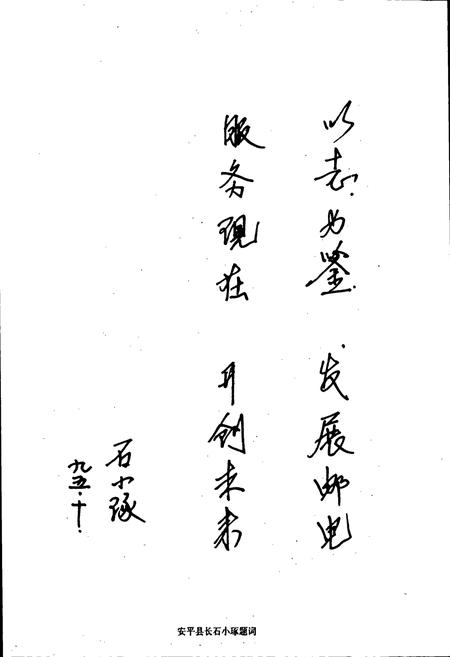 以志为鉴 发展邮电
服务现在 开创未来
石小琢
九五·十·
安平县长石小琢题词